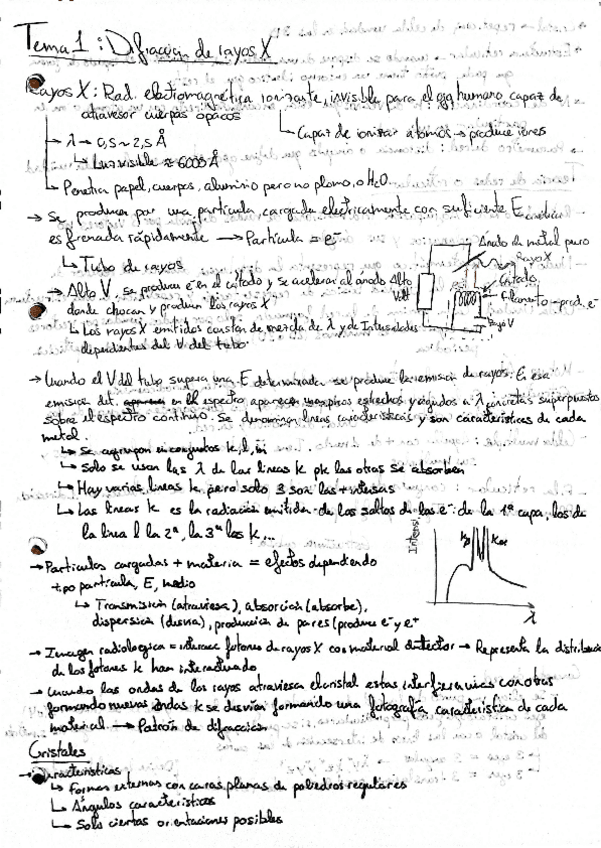 Tema 1: Difracción de rayos X
Rayos X: Rad. electromagnética ionizante, invisible para el ojo humano capaz de
atravesar cuerpos opacos
Capaz de ionizar átomos → produce iones
→ λ → 0,5 ~ 2,5 Å
↳ Luz visible ≈ 6000 Å
Penetra papel, cuerpos, aluminio pero no plomo, o H₂O.
→ Se producen por una partícula, cargada electricamente con suficiente E
es frenada rápidamente → Partícula = e⁻
↳ Tubo de rayos
→ Alto V, se producen e⁻ en el cátodo y se aceleran al ánodo
donde chocan y producen los rayos X
↳ Los rayos X emitidos constan de mezcla de λ y de Intensidades
dependientes del V del tubo.
Ánodo de metal puro
Rayo X
Cátodo
Filamento → prod. e⁻
Alto
Volt
Bajo V
→ Cuando el V del tubo supera una E determinada se produce la emisión de rayos. En esa
emisión det. en el espectro aparecen unos picos estrechos y agudos a λ concretas superpuestos
sobre el espectro continuo. Se denominan líneas características y son características de cada
metal.
↳ Se agrupan en conjuntos k, l, m
↳ Solo se usan las λ de las líneas k pk las otras se absorben
↳ Hay varias líneas k pero solo 3 son las + intensas
↳ Las líneas k es la radiación emitida de los saltos de los e⁻ de la 1ª capa, los de
la línea l la 2ª, la 3ª los k...
→ Partículas cargadas + materia = efectos dependiendo
tipo partícula, E, medio
↳ Transmisión (atraviesa), absorción (absorbe),
dispersión (desvía), producción de pares (produce e⁻ y e⁺
Intensi
Kβ
Kα
λ
→ Imagen radiologica = interacc fotones de rayos X con material detector → Representa la distribución
de los fotones k han interactuado
→ Cuando las ondas de los rayos atraviesan el cristal estas interfieren unas con otras
formando nuevas ondas k se desvían formando una fotografía característica de cada
material → Patrón de difracción
Cristales
→ Características
↳ Formas externas con caras planas de poliedros regulares
↳ Ángulos característicos
↳ Solo ciertas orientaciones posibles